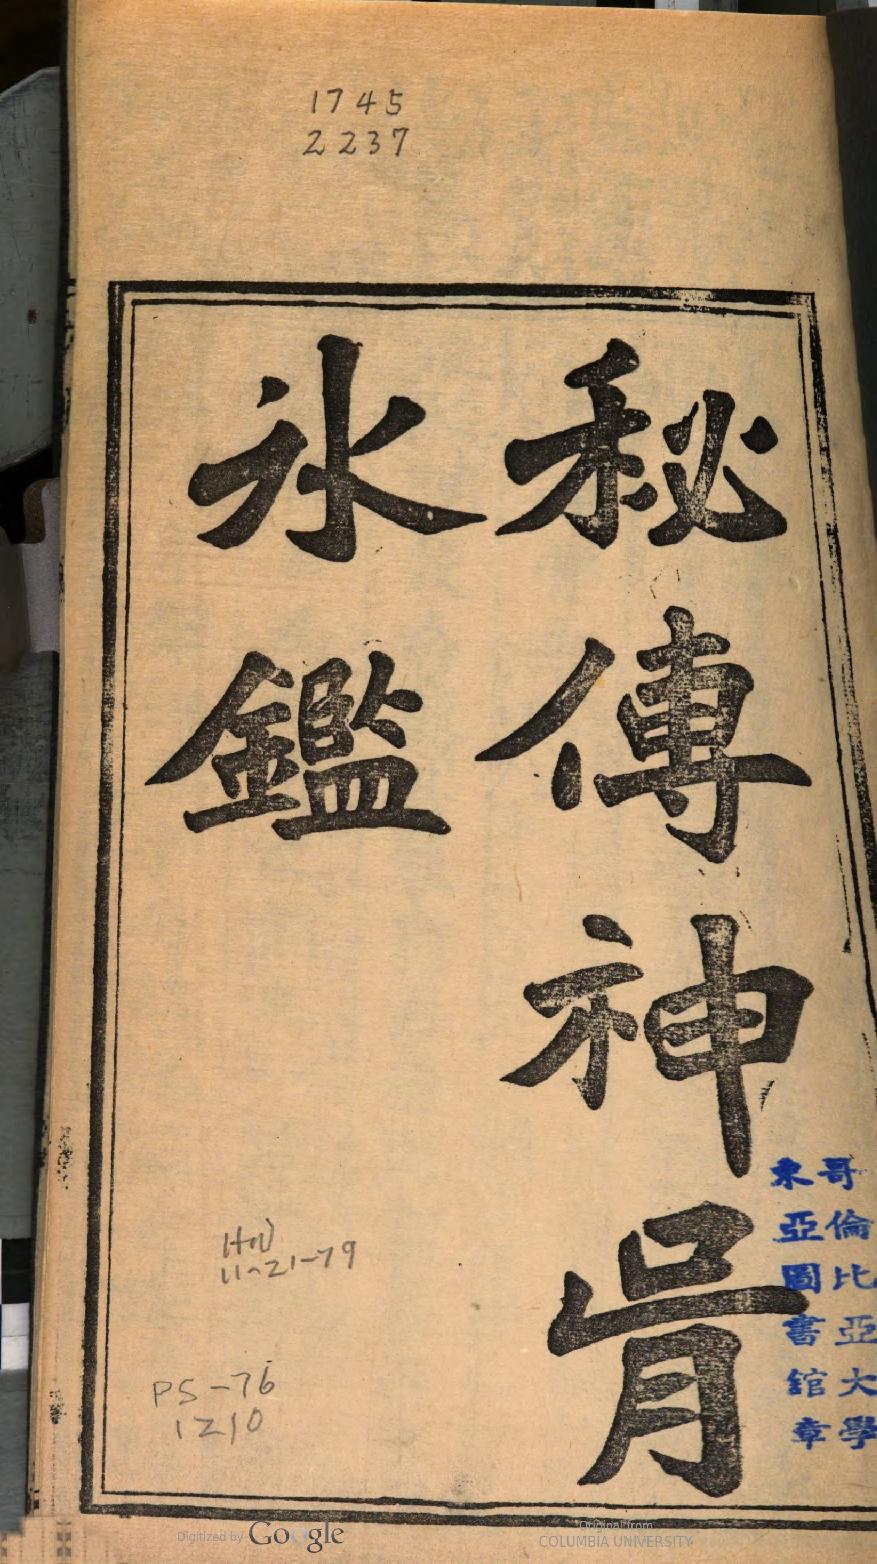 1745
2237
秘傳神骨
冰鑑
哥倫比亞大學
東亞圖書館章
11-21-79
PS-76
1210
Digitized by Google
Original from
COLUMBIA UNIVERSITY